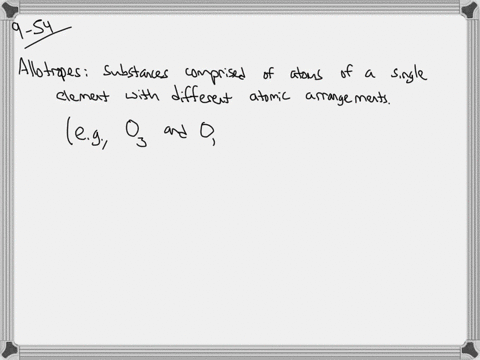 9-54
Allotropes: substances comprised of atoms of a single
element with different atomic arrangements.
(e.g., O₃ and O,